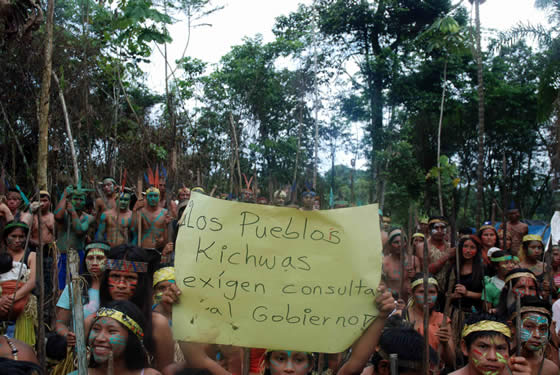 Los Pueblos
Kichwas
exígen consulta
al Gobierno